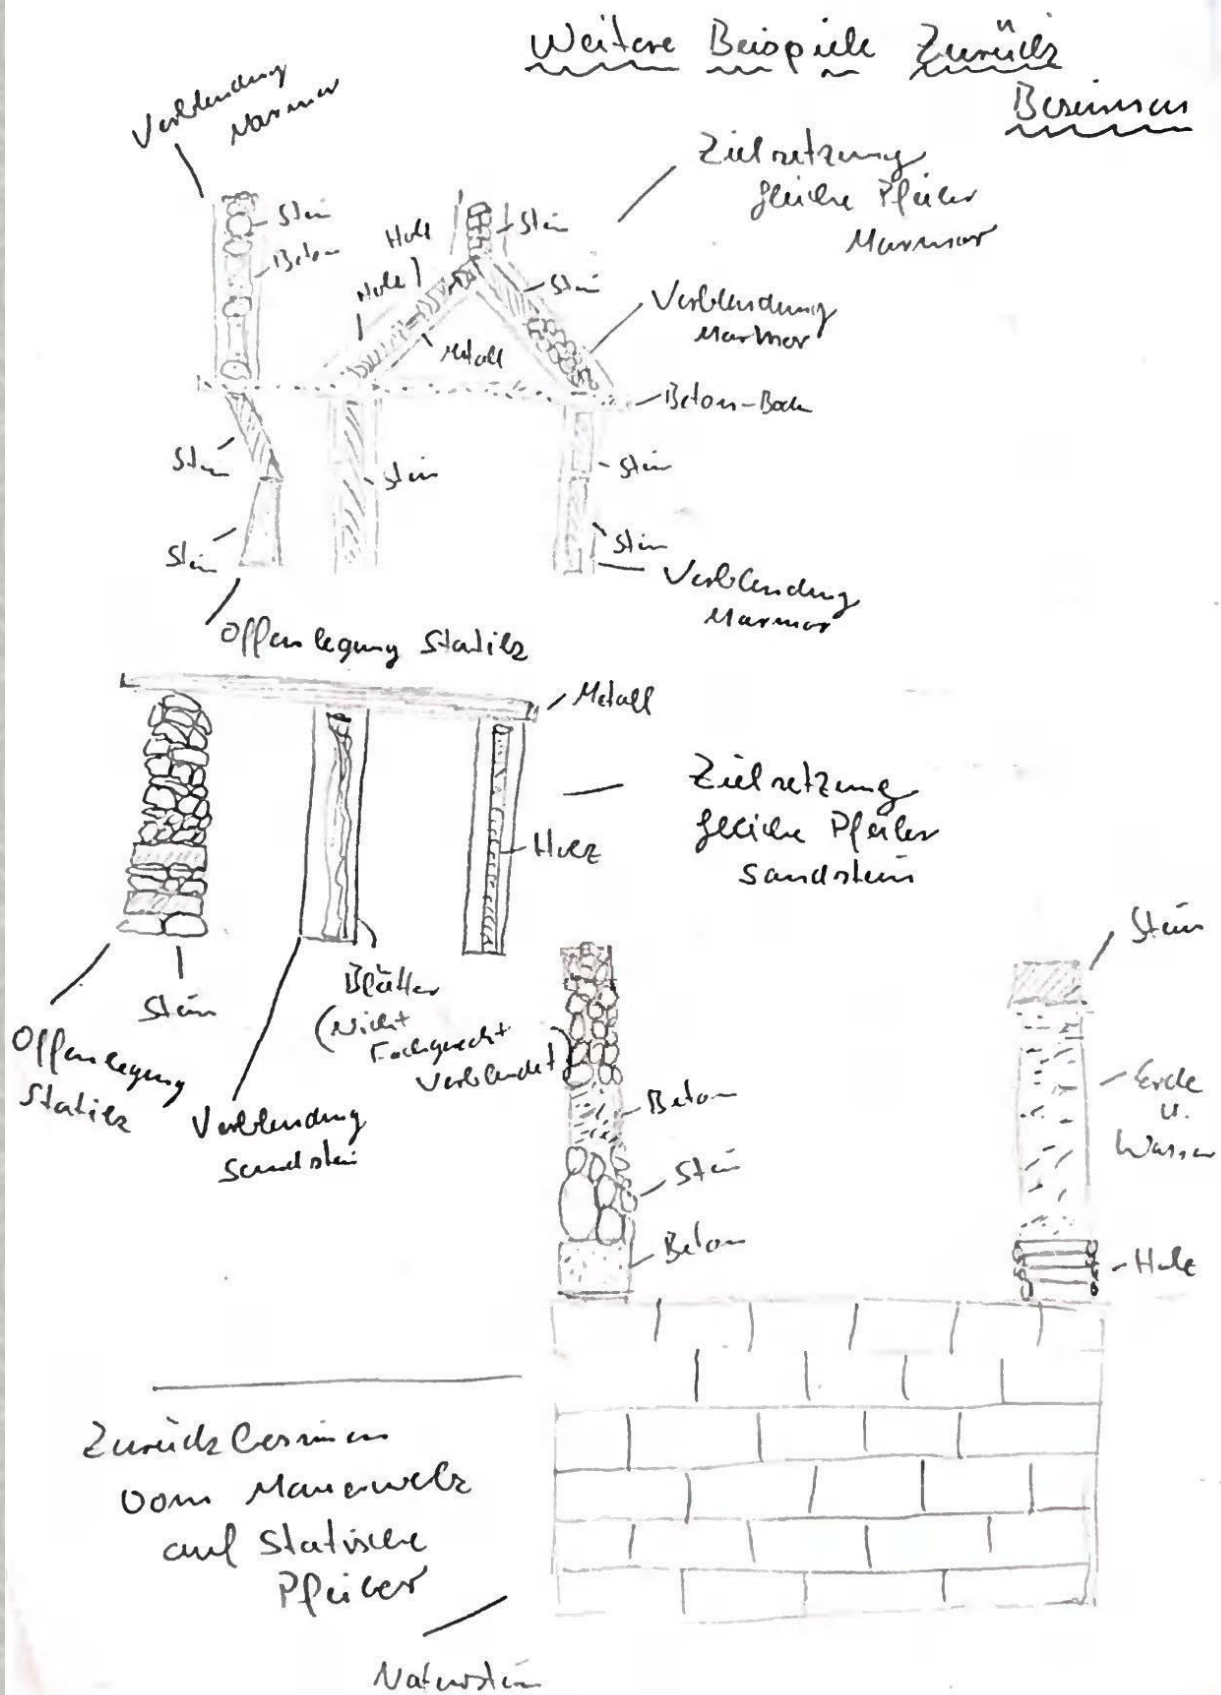 Weitere Beispiele Zurück
Besinnen
Verblendung
Marmor
Zielsetzung
gleiche Pfeiler
Marmor
Stein
Beton
Holz
Holz
Stein
Stein
Metall
Verblendung
Marmor
Beton-
Stein
Stein
Stein
Stein
Stein
Verblendung
Marmor
Offenlegung Statik
Metall
Zielsetzung
gleiche Pfeiler
Sandstein
Holz
Offenlegung
Statik
Stein
Verblendung
Sandstein
Blätter
(Nicht
Fachgerecht
Verblendet)
Beton
Stein
Beton
Stein
Erde
u.
Wasser
Holz
Zurückbesinnen
vom Mauerwerk
auf Statische
Pfeiler
Naturstein